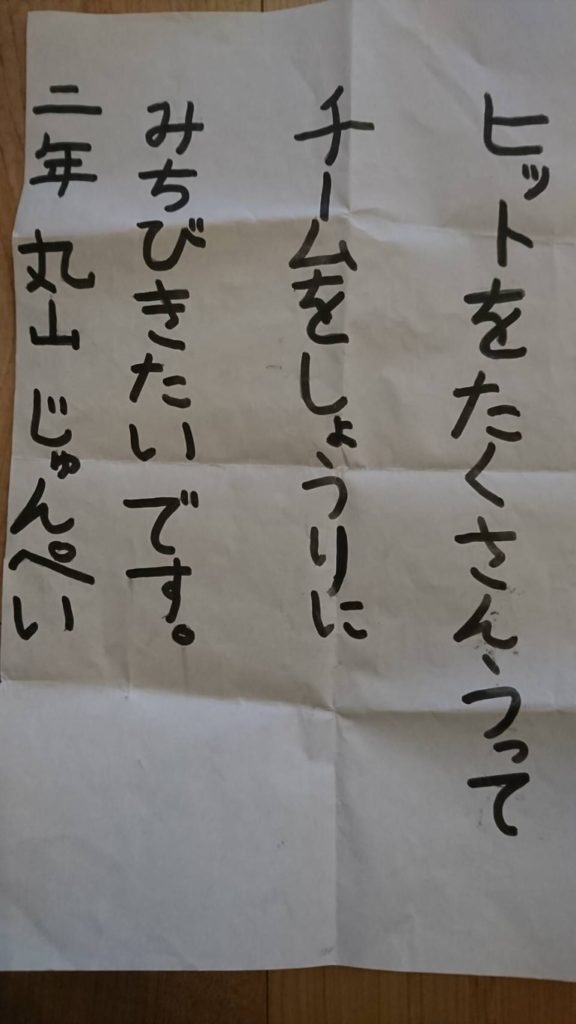 ヒットをたくさんうって
チームをしょうりに
みちびきたいです。
二年 丸山 じゅんぺい